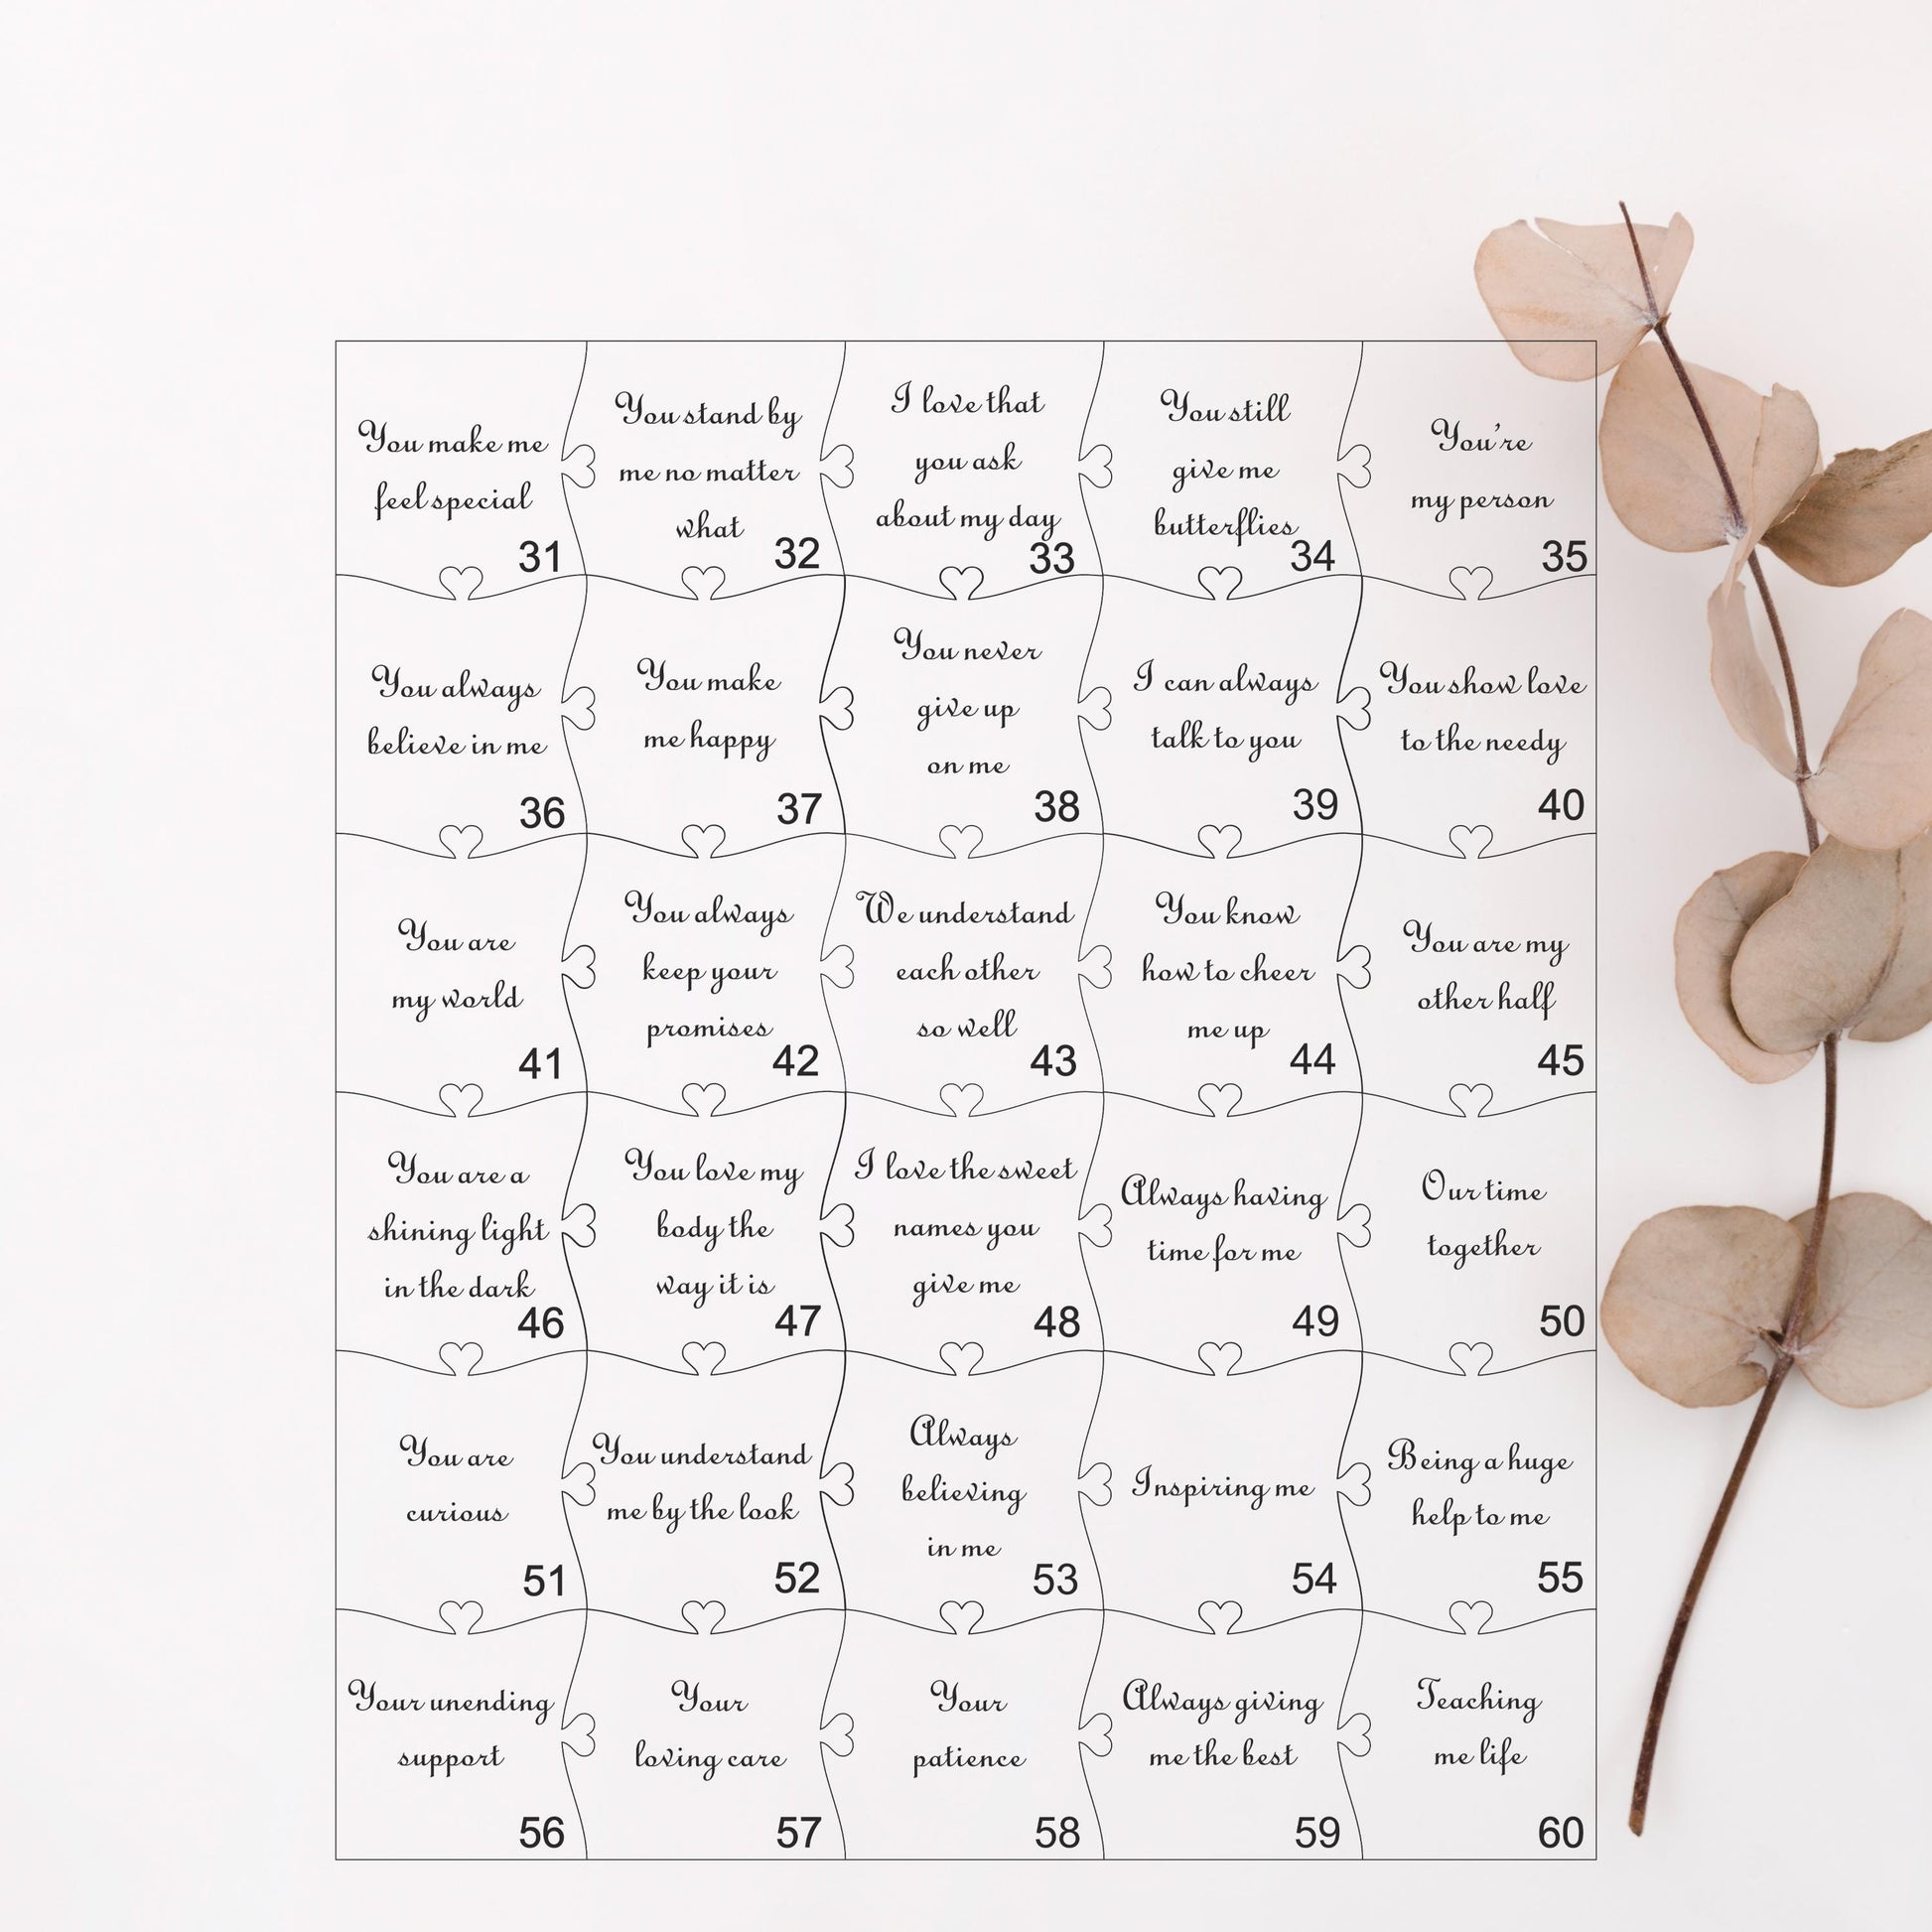 You make me
feel special
31
You stand by
me no matter
what
32
I love that
you ask
about my day
33
You still
give me
butterflies
34
You're
my person
35
You always
believe in me
36
You make
me happy
37
You never
give up
on me
38
I can always
talk to you
39
You show love
to the needy
40
You are
my world
41
You always
keep your
promises
42
We understand
each other
so well
43
You know
how to cheer
me up
44
You are my
other half
45
You are a
shining light
in the dark
46
You love my
body the
way it is
47
I love the sweet
names you
give me
48
Always having
time for me
49
Our time
together
50
You are
curious
51
You understand
me by the look
52
Always
believing
in me
53
Inspiring me
54
Being a huge
help to me
55
Your unending
support
56
Your
loving care
57
Your
patience
58
Always giving
me the best
59
Teaching
me life
60